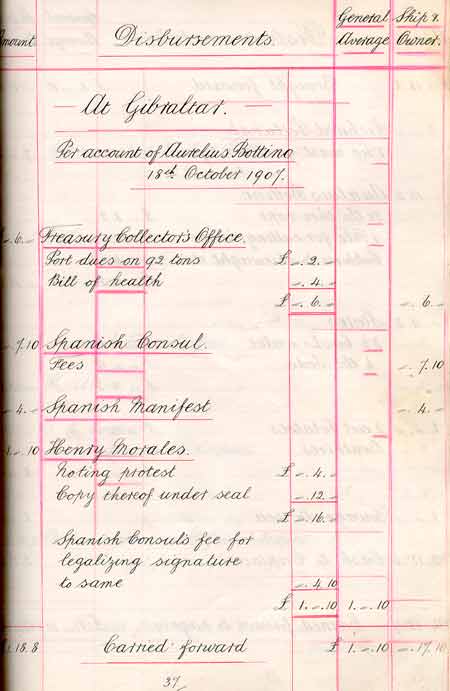 General Ship &
Amount Disbursements. Average Owner.
At Gibraltar.
Per account of Aurelius Bottino
18th October 1907.
-. 6. - Treasury Collector's Office.
Port dues on 92 tons £ -. 2. -
Bill of health -. 4. -
£ -. 6. - -. 6. -
-. 7. 10 Spanish Consul.
Fees -. 7. 10
-. 4. - Spanish Manifest -. 4. -
1. -. 10 Henry Morales.
Noting protest £ -. 4. -
Copy thereof under seal -. 12. -
£ -. 16. -
Spanish Consul's fee for
legalizing signature
to same -. 4. 10
£ 1. -. 10 1. -. 10
1. 18. 8 Carried forward £ 1. -. 10 -. 17. 10
37